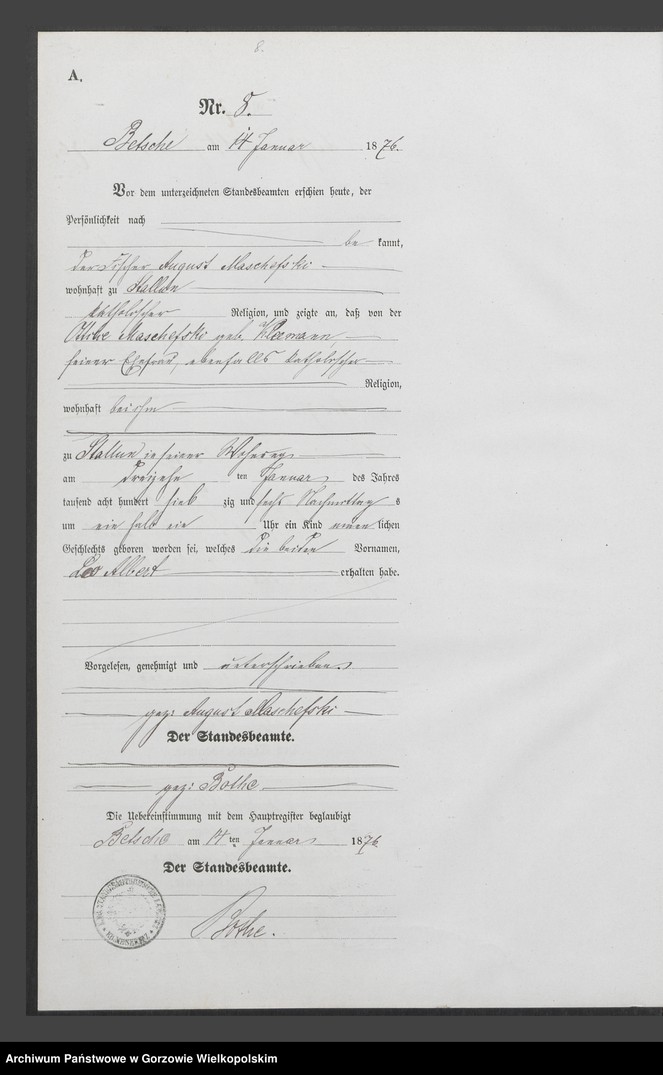 8.
A.
Nr. 8.
Betsche am 14 Januar 1876.
Vor dem unterzeichneten Standesbeamten erschien heute, der
Persönlichkeit nach
be kannt,
der Fischer August Maschefski
wohnhaft zu Stallun
katholischer Religion, und zeigte an, daß von der
Maschefski geb.
seiner Ehefrau, ebenfalls katholischer
Religion,
wohnhaft bei ihm
zu Stallun in seiner Wohnung
am dreizehn ten Januar des Jahres
tausend acht hundert sieb zig und sechs Nachmittag s
um ein halb ein Uhr ein Kind männ lichen
Geschlechts geboren worden sei, welches die beiden Vornamen,
Leo Albert erhalten habe.
Vorgelesen, genehmigt und unterschrieben
gez: August Maschefski
Der Standesbeamte.
gez: Bothe
Die Uebereinstimmung mit dem Hauptregister beglaubigt
Betsche am 14 ten Januar 1876
Der Standesbeamte.
Bothe.
Archiwum Państwowe w Gorzowie Wielkopolskim